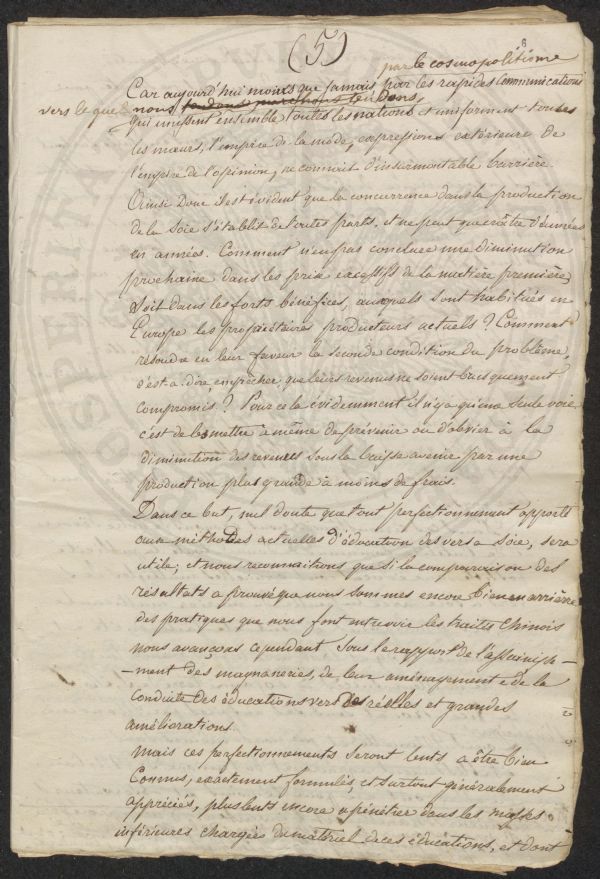 8
(5)
par le cosmopolitisme
Car aujourd'hui moins que jamais, par les rapides communications
vers lequel nous tendons,
qui unissent ensemble toutes les nations et uniforment toutes
les mœurs, l'empire de la mode, expression extérieure de
l'empire de l'opinion, ne connait d'insurmontable barrière.
Ainsi Donc il est évident que la concurrence dans la production
de la Soie s'établit de toutes parts, et ne peut que croître d'années
en années. Comment n'en pas conclure une diminution
prochaine dans les prix excessifs de la matière première,
soit dans les forts bénéfices, auxquels sont habitués en
Europe les propriétaires producteurs actuels? Comment
résoudre en leur faveur la seconde condition du problème,
c'est a dire empêcher que leurs revenus ne soient brusquement
compromis? Pour cela évidemment il n'y a qu'une seule voie
c'est de les mettre à même de prévenir ou d'obvier à la
diminution des revenus sous la baisse avenir par une
production plus grande à moins de frais.
Dans ce but, nul doute que tout perfectionnement apporté
aux méthodes actuelles d'éducation des vers a soie, sera
utile; et nous reconnaitrons que si la comparaison des
résultats a prouvé que nous sommes encore bien en arrière
des pratiques que nous font entrevoir les traités Chinois
nous avançons cependant sous le rapport de l'assainisse-
-ment des magnaneries, de leur aménagement & de la
conduite des éducations vers des réelles et grandes
améliorations.
Mais ces perfectionnements seront lents a être bien
Connus, exactement formulés et surtout généralement
appréciés, plus lents encore a pénétrer dans les masses
inférieures chargées du matériel de ces éducations, et dont